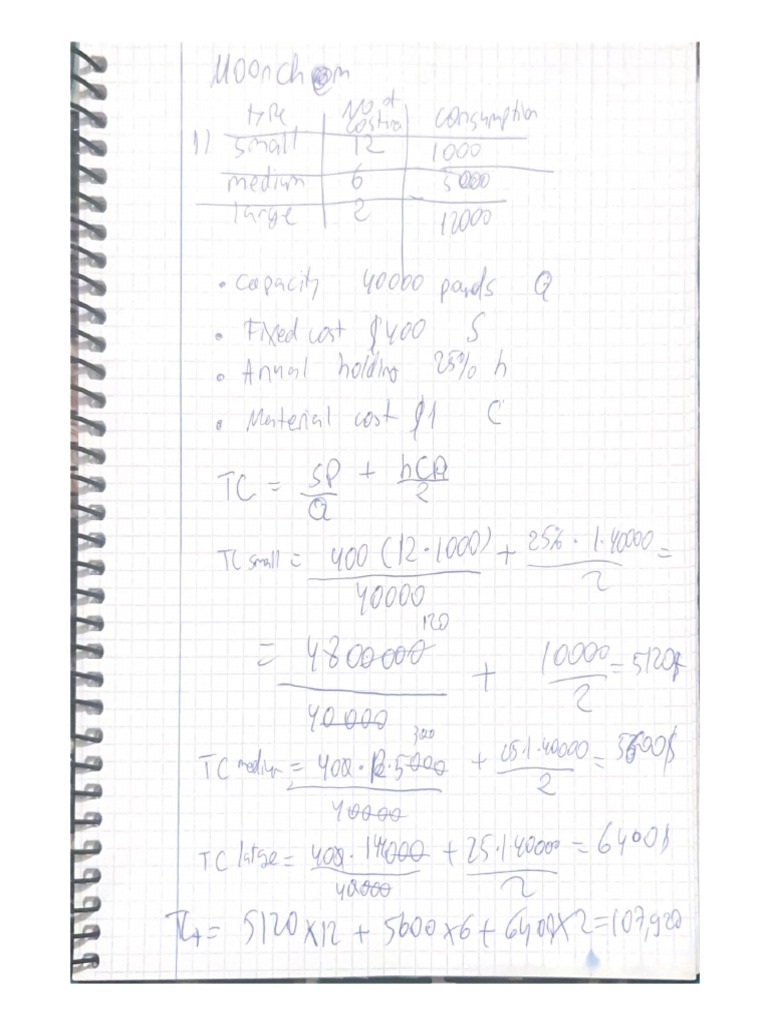 Moonchem
type No of costm consumption
1) small 12 1000
medium 6 5000
large 2 12000
• Capacity 40000 pands Q
• Fixed cost $400 S
• Annual holding 25% h
• Material cost $1 C
TC = SD/Q + hCQ/2
TC small = 400 (12·1000)/40000 + 25%·1·40000/2 =
= 4800000/40000 120 + 10000/2 = 5120$
TC medium = 400·12·5000/40000 300 + 25·1·40000/2 = 5600$
TC large = 400·144000/40000 + 25·1·40000/2 = 6400$
TC+ = 5120×12 + 5600×6 + 6400×2 = 107,920